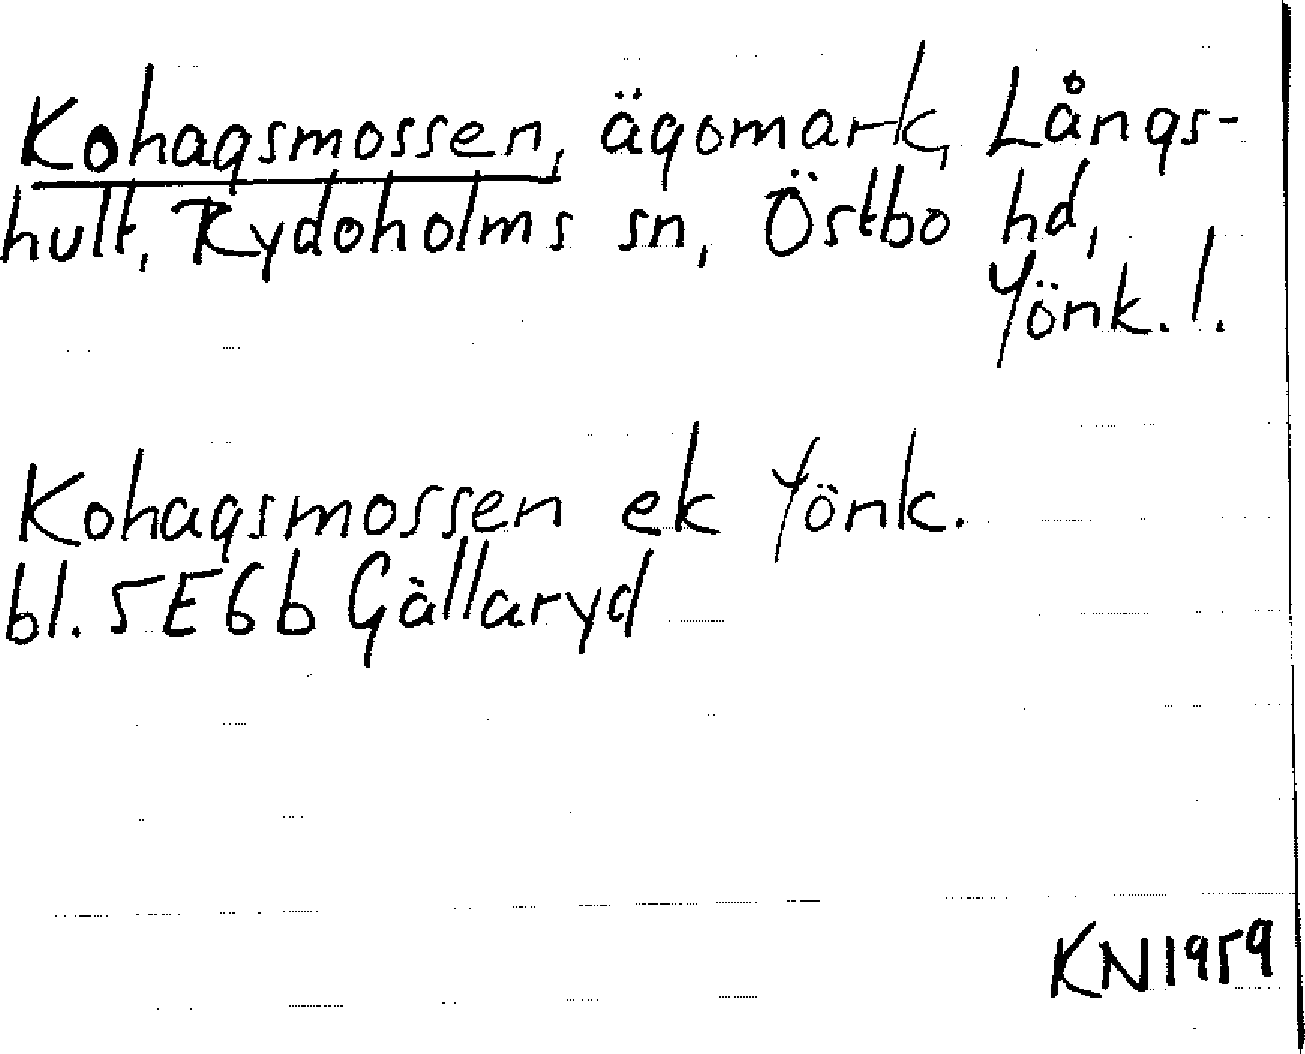 Kohagsmossen, ägomark, Långs-
hult, Rydoholms sn, Östbo hd,
Jönk. l.
Kohagsmossen ek Jönk.
bl. 5E6b Gällaryd
KN1959